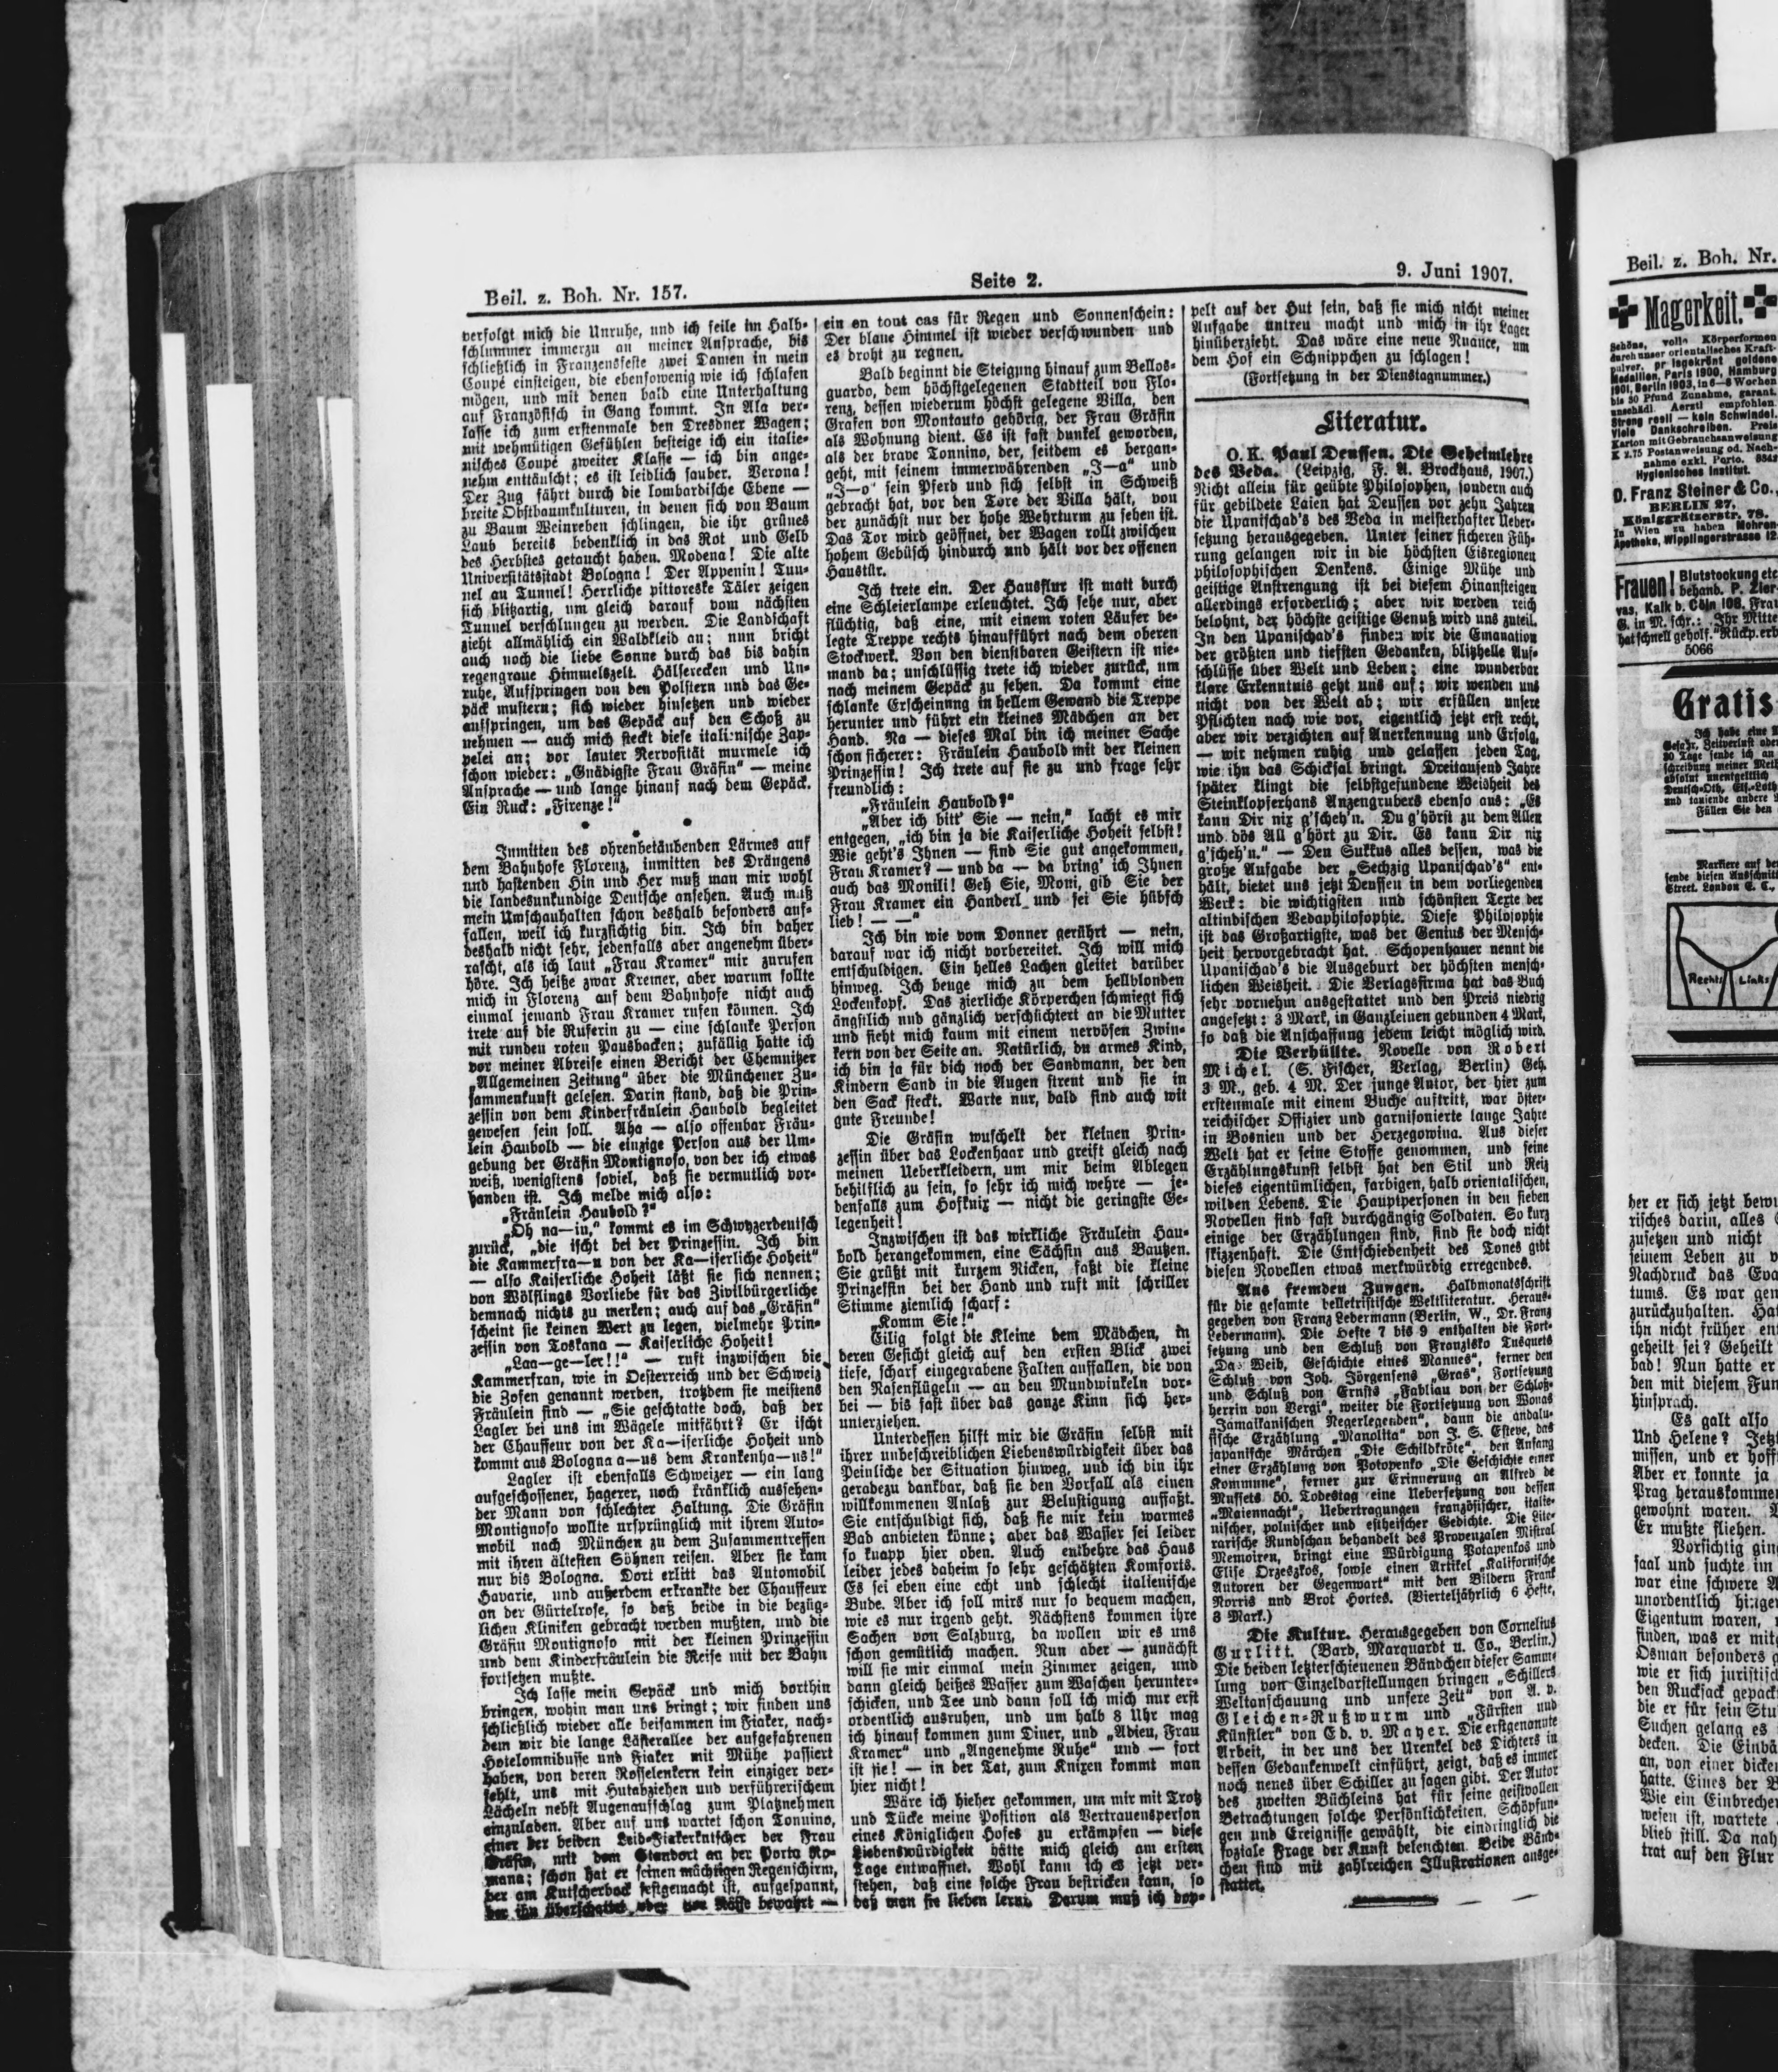 Beil. z. Boh. Nr. 157.
Seite 2.
9. Juni 1907.
verfolgt mich die Unruhe, und ich feile im Halb-
schlummer immerzu an meiner Ansprache, bis
schließlich in Franzensfeste zwei Damen in mein
Coupé einsteigen, die ebensowenig wie ich schlafen
mögen, und mit denen bald eine Unterhaltung
auf Französisch in Gang kommt. In Ala ver-
lasse ich zum erstenmale den Dresdner Wagen;
mit wehmütigen Gefühlen besteige ich ein italie-
nisches Coupé zweiter Klasse — ich bin ange-
nehm enttäuscht; es ist leidlich sauber. Verona!
Der Zug fährt durch die lombardische Ebene —
breite Obstbaumkulturen, in denen sich von Baum
zu Baum Weinreben schlingen, die ihr grünes
Laub bereits bedenklich in das Rot und Gelb
des Herbstes getaucht haben. Modena! Die alte
Universitätsstadt Bologna! Der Appenin! Tun-
nel an Tunnel! Herrliche pittoreske Täler zeigen
sich blitzartig, um gleich darauf vom nächsten
Tunnel verschlungen zu werden. Die Landschaft
zieht allmählich ein Waldkleid an; nun bricht
auch noch die liebe Sonne durch das bis dahin
regengraue Himmelszelt. Hälserecken und Un-
ruhe, Aufspringen von den Polstern und das Ge-
päck mustern; sich wieder hinsetzen und wieder
aufspringen, um das Gepäck auf den Schoß zu
nehmen — auch mich steckt diese italienische Zap-
pelei an; vor lauter Nervosität murmele ich
schon wieder: „Gnädigste Frau Gräfin“ — meine
Ansprache — und lange hinauf nach dem Gepäck.
Ein Ruck: „Firenze!“
• • •
Inmitten des ohrenbetäubenden Lärmes auf
dem Bahnhofe Florenz, inmitten des Drängens
und hastenden Hin und Her muß man mir wohl
die landesunkundige Deutsche ansehen. Auch muß
mein Umschauhalten schon deshalb besonders auf-
fallen, weil ich kurzsichtig bin. Ich bin daher
deshalb nicht sehr, jedenfalls aber angenehm über-
rascht, als ich laut „Frau Kramer“ mir zurufen
höre. Ich heiße zwar Kremer, aber warum sollte
mich in Florenz auf dem Bahnhofe nicht auch
einmal jemand Frau Kramer rufen können. Ich
trete auf die Ruferin zu — eine schlanke Person
mit runden roten Pausbacken; zufällig hatte ich
vor meiner Abreise einen Bericht der Chemnitzer
„Allgemeinen Zeitung“ über die Münchener Zu-
sammenkunft gelesen. Darin stand, daß die Prin-
zessin von dem Kinderfräulein Haubold begleitet
gewesen sein soll. Aha — also offenbar Fräu-
lein Haubold — die einzige Person aus der Um-
gebung der Gräfin Montignoso, von der ich etwas
weiß, wenigstens soviel, daß sie vermutlich vor-
handen ist. Ich melde mich also:
„Fräulein Haubold?“
„Oh na—in,“ kommt es im Schwyzerdeutsch
zurück, „die ischt bei der Prinzessin. Ich bin
die Kammerfra—u von der Ka—iserliche Hoheit“
— also Kaiserliche Hoheit läßt sie sich nennen;
von Wölflings Vorliebe für das Zivilbürgerliche
demnach nichts zu merken; auch auf das „Gräfin“
scheint sie keinen Wert zu legen, vielmehr Prin-
zessin von Toskana — Kaiserliche Hoheit!
„Laa—ge—ler!!“ — ruft inzwischen die
Kammerfrau, wie in Oesterreich und der Schweiz
die Zofen genannt werden, trotzdem sie meistens
Fräulein sind — „Sie geschtatte doch, daß der
Lagler bei uns im Wägele mitfährt? Er ischt
der Chauffeur von der Ka—iserliche Hoheit und
kommt aus Bologna a—us dem Krankenha—us!“
Lagler ist ebenfalls Schweizer — ein lang
aufgeschossener, hagerer, noch kränklich aussehen-
der Mann von schlechter Haltung. Die Gräfin
Montignoso wollte ursprünglich mit ihrem Auto-
mobil nach München zu dem Zusammentreffen
mit ihren ältesten Söhnen reisen. Aber sie kam
nur bis Bologna. Dort erlitt das Automobil
Havarie, und außerdem erkrankte der Chauffeur
an der Gürtelrose, so daß beide in die bezüg-
lichen Kliniken gebracht werden mußten, und die
Gräfin Montignoso mit der kleinen Prinzessin
und dem Kinderfräulein die Reise mit der Bahn
fortsetzen mußte.
Ich lasse mein Gepäck und mich dorthin
bringen, wohin man uns bringt; wir finden uns
schließlich wieder alle beisammen im Fiaker, nach-
dem wir die lange Lästerallee der aufgefahrenen
Hotelomnibusse und Fiaker mit Mühe passiert
haben, von deren Rosselenkern kein einziger ver-
fehlt, uns mit Hutabziehen und verführerischem
Lächeln nebst Augenaufschlag zum Platznehmen
einzuladen. Aber auf uns wartet schon Tonnino,
einer der beiden Leib-Fiakerkutscher der Frau
Gräfin, mit dem Standort an der Porta Ro-
mana; schon hat er seinen mächtigen Regenschirm,
der am Kutscherbock festgemacht ist, aufgespannt,
der ihn überschattet oder von Nässe bewahrt —
ein en tout cas für Regen und Sonnenschein:
Der blaue Himmel ist wieder verschwunden und
es droht zu regnen.
Bald beginnt die Steigung hinauf zum Bellos-
guardo, dem höchstgelegenen Stadtteil von Flo-
renz, dessen wiederum höchst gelegene Villa, den
Grafen von Montauto gehörig, der Frau Gräfin
als Wohnung dient. Es ist fast dunkel geworden,
als der brave Tonnino, der, seitdem es bergan-
geht, mit seinem immerwährenden „J—a“ und
„J—o“ sein Pferd und sich selbst in Schweiß
gebracht hat, vor den Tore der Villa hält, von
der zunächst nur der hohe Wehrturm zu sehen ist.
Das Tor wird geöffnet, der Wagen rollt zwischen
hohem Gebüsch hindurch und hält vor der offenen
Haustür.
Ich trete ein. Der Hausflur ist matt durch
eine Schleierlampe erleuchtet. Ich sehe nur, aber
flüchtig, daß eine, mit einem roten Läufer be-
legte Treppe rechts hinaufführt nach dem oberen
Stockwerk. Von den dienstbaren Geistern ist nie-
mand da; unschlüssig trete ich wieder zurück, um
nach meinem Gepäck zu sehen. Da kommt eine
schlanke Erscheinung in hellem Gewand die Treppe
herunter und führt ein kleines Mädchen an der
Hand. Na — dieses Mal bin ich meiner Sache
schon sicherer: Fräulein Haubold mit der kleinen
Prinzessin! Ich trete auf sie zu und frage sehr
freundlich:
„Fräulein Haubold?“
„Aber ich bitt' Sie — nein,“ lacht es mir
entgegen, „ich bin ja die Kaiserliche Hoheit selbst!
Wie geht's Ihnen — sind Sie gut angekommen,
Frau Kramer? — und da — da bring' ich Ihnen
auch das Monili! Geh Sie, Moni, gib Sie der
Frau Kramer ein Handerl und sei Sie hübsch
lieb! — —“
Ich bin wie vom Donner gerührt — nein,
darauf war ich nicht vorbereitet. Ich will mich
entschuldigen. Ein helles Lachen gleitet darüber
hinweg. Ich beuge mich zu dem hellblonden
Lockenkopf. Das zierliche Körperchen schmiegt sich
ängstlich und gänzlich verschüchtert an die Mutter
und sieht mich kaum mit einem nervösen Zwin-
kern von der Seite an. Natürlich, du armes Kind,
ich bin ja für dich noch der Sandmann, der den
Kindern Sand in die Augen streut und sie in
den Sack steckt. Warte nur, bald sind auch wit
gute Freunde!
Die Gräfin wuschelt der kleinen Prin-
zessin über das Lockenhaar und greift gleich nach
meinen Ueberkleidern, um mir beim Ablegen
behilflich zu sein, so sehr ich mich wehre — je-
denfalls zum Hofknix — nicht die geringste Ge-
legenheit!
Inzwischen ist das wirkliche Fräulein Hau-
bold herangekommen, eine Sächsin aus Bautzen.
Sie grüßt mit kurzem Nicken, faßt die kleine
Prinzessin bei der Hand und ruft mit schriller
Stimme ziemlich scharf:
„Komm Sie!“
Eilig folgt die Kleine dem Mädchen, in
deren Gesicht gleich auf den ersten Blick zwei
tiefe, scharf eingegrabene Falten auffallen, die von
den Nasenflügeln — an den Mundwinkeln vor-
bei — bis fast über das ganze Kinn sich her-
unterziehen.
Unterdessen hilft mir die Gräfin selbst mit
ihrer unbeschreiblichen Liebenswürdigkeit über das
Peinliche der Situation hinweg, und ich bin ihr
geradezu dankbar, daß sie den Vorfall als einen
willkommenen Anlaß zur Belustigung auffaßt.
Sie entschuldigt sich, daß sie mir kein warmes
Bad anbieten könne; aber das Wasser sei leider
so knapp hier oben. Auch entbehre das Haus
leider jedes daheim so sehr geschätzten Komforts.
Es sei eben eine echt und schlecht italienische
Bude. Aber ich soll mirs nur so bequem machen,
wie es nur irgend geht. Nächstens kommen ihre
Sachen von Salzburg, da wollen wir es uns
schon gemütlich machen. Nun aber — zunächst
will sie mir einmal mein Zimmer zeigen, und
dann gleich heißes Wasser zum Waschen herunter-
schicken, und Tee und dann soll ich mich nur erst
ordentlich ausruhen, und um halb 8 Uhr mag
ich hinauf kommen zum Diner, und „Adieu, Frau
Kramer“ und „Angenehme Ruhe“ und — fort
ist sie! — in der Tat, zum Knixen kommt man
hier nicht!
Wäre ich hieher gekommen, um mir mit Trotz
und Tücke meine Position als Vertrauensperson
eines Königlichen Hofes zu erkämpfen — diese
Liebenswürdigkeit hätte mich gleich am ersten
Tage entwaffnet. Wohl kann ich es jetzt ver-
stehen, daß eine solche Frau bestricken kann, so
daß man sie lieben lernt. Darum muß ich dop-
pelt auf der Hut sein, daß sie mich nicht meiner
Aufgabe untreu macht und mich in ihr Lager
hinüberzieht. Das wäre eine neue Nuance, um
dem Hof ein Schnippchen zu schlagen!
(Fortsetzung in der Dienstagnummer.)
Literatur.
O. K. Paul Deussen. Die Geheimlehre
des Veda. (Leipzig, F. A. Brockhaus, 1907.)
Nicht allein für geübte Philosophen, sondern auch
für gebildete Laien hat Deussen vor zehn Jahren
die Upanischad's des Veda in meisterhafter Ueber-
setzung herausgegeben. Unter seiner sicheren Füh-
rung gelangen wir in die höchsten Eisregionen
philosophischen Denkens. Einige Mühe und
geistige Anstrengung ist bei diesem Hinansteigen
allerdings erforderlich; aber wir werden reich
belohnt, der höchste geistige Genuß wird uns zuteil.
In den Upanischad's finden wir die Emanation
der größten und tiefsten Gedanken, blitzhelle Auf-
schlüsse über Welt und Leben; eine wunderbar
klare Erkenntnis geht uns auf; wir wenden uns
nicht von der Welt ab; wir erfüllen unsere
Pflichten nach wie vor, eigentlich jetzt erst recht,
aber wir verzichten auf Anerkennung und Erfolg,
— wir nehmen ruhig und gelassen jeden Tag,
wie ihn das Schicksal bringt. Dreitausend Jahre
später klingt die selbstgefundene Weisheit des
Steinklopferhans Anzengrubers ebenso aus: „Es
kann Dir nix g'scheh'n. Du g'hörst zu dem Allen
und dös All g'hört zu Dir. Es kann Dir nix
g'scheh'n.“ — Den Sukkus alles dessen, was die
große Aufgabe der „Sechzig Upanischad's“ ent-
hält, bietet uns jetzt Deussen in dem vorliegenden
Werk: die wichtigsten und schönsten Texte der
altindischen Vedaphilosophie. Diese Philosophie
ist das Großartigste, was der Genius der Mensch-
heit hervorgebracht hat. Schopenhauer nennt die
Upanischad's die Ausgeburt der höchsten mensch-
lichen Weisheit. Die Verlagsfirma hat das Buch
sehr vornehm ausgestattet und den Preis niedrig
angesetzt: 3 Mark, in Ganzleinen gebunden 4 Mark,
so daß die Anschaffung jedem leicht möglich wird.
Die Verhüllte. Novelle von Robert
Michel. (S. Fischer, Verlag, Berlin) Geh.
3 M., geb. 4 M. Der junge Autor, der hier zum
erstenmale mit einem Buche auftritt, war öster-
reichischer Offizier und garnisonierte lange Jahre
in Bosnien und der Herzegowina. Aus dieser
Welt hat er seine Stoffe genommen, und seine
Erzählungskunst selbst hat den Stil und Reiz
dieses eigentümlichen, farbigen, halb orientalischen,
wilden Lebens. Die Hauptpersonen in den sieben
Novellen sind fast durchgängig Soldaten. So kurz
einige der Erzählungen sind, sind sie doch nicht
skizzenhaft. Die Entschiedenheit des Tones gibt
diesen Novellen etwas merkwürdig erregendes.
Aus fremden Zungen. Halbmonatsschrift
für die gesamte belletristische Weltliteratur. Heraus-
gegeben von Franz Ledermann (Berlin, W., Dr. Franz
Ledermann). Die Hefte 7 bis 9 enthalten die Fort-
setzung und den Schluß von Franzisko Tusquets
„Das Weib, Geschichte eines Mannes“, ferner den
Schluß von Joh. Jörgensens „Gras“, Fortsetzung
und Schluß von Ernsts „Fabliau von der Schloß-
herrin von Vergi“, weiter die Fortsetzung von Wonas
„Jamaikanischen Negerlegenden“, dann die andalu-
sische Erzählung „Manolita“ von J. S. Esteve, das
japanische Märchen „Die Schildkröte“, den Anfang
einer Erzählung von Potopenko „Die Geschichte einer
Kommune“, ferner zur Erinnerung an Alfred de
Mussets 50. Todestag eine Uebersetzung von dessen
„Maiennacht“, Uebertragungen französischer, italie-
nischer, polnischer und estheischer Gedichte. Die Lite-
rarische Rundschau behandelt des Provenzalen Mistral
Memoiren, bringt eine Würdigung Potapenkos und
Elise Orzeszkos, sowie einen Artikel „Kalifornische
Autoren der Gegenwart“ mit den Bildern Frank
Norris und Bret Hortes. (Vierteljährlich 6 Hefte,
3 Mark.)
Die Kultur. Herausgegeben von Cornelius
Gurlitt. (Bard, Marquardt u. Co., Berlin.)
Die beiden letzterschienenen Bändchen dieser Samm-
lung von Einzeldarstellungen bringen „Schillers
Weltanschauung und unsere Zeit“ von A. v.
Gleichen-Rußwurm und „Fürsten und
Künstler“ von Ed. v. Mayer. Die erstgenannte
Arbeit, in der uns der Urenkel des Dichters in
dessen Gedankenwelt einführt, zeigt, daß es immer
noch neues über Schiller zu sagen gibt. Der Autor
des zweiten Büchleins hat für seine geistvollen
Betrachtungen solche Persönlichkeiten, Schöpfun-
gen und Ereignisse gewählt, die eindringlich die
soziale Frage der Kunst beleuchten. Beide Bänd-
chen sind mit zahlreichen Illustrationen ausge-
stattet.
Beil. z. Boh. Nr.
Magerkeit.
Schöne, volle Körperformen
durch unser orientalisches Kraft-
pulver, preisgekrönt goldene
Medaillen, Paris 1900, Hamburg
1901, Berlin 1903, in 6—8 Wochen
bis 30 Pfund Zunahme, garant.
unschädl. Aerztl. empfohlen.
Streng reell — kein Schwindel.
Viele Dankschreiben. Preis
Karton mit Gebrauchsanweisung
K 2.75 Postanweisung od. Nach-
nahme exkl. Porto.
Hygienisches Institut.
D. Franz Steiner & Co.,
BERLIN 27,
Königgrätzerstr. 78.
In Wien zu haben Mohren-
Apotheke, Wipplingerstrasse 12.
Frauen! Blutstockung etc
behand. P. Zier-
vas, Kalk b. Cöln 108. Frau
G. in M. schr.: Ihr Mittel
hat schnell geholf. Rückp. erb
5066
Gratis
Ich habe eine
Gefahr, Zeitverlust oder
30 Tage sende ich an
schreibung meiner Meth
absolut unentgeltlich
und tausende andere
Füllen Sie den
Markiere auf de
sende diesen Ausschnitt
Street. London E. C.,
Rechts Links
her er sich jetzt bewu
risches darin, alles
zusetzen und nicht
seinem Leben zu v
Nachdruck das Eva
tums. Es war gen
zurückzuhalten. Ha
ihn nicht früher en
geheilt sei? Geheilt
bad! Nun hatte er
den mit diesem Fun
hinsprach.
Es galt also
Und Helene? Jetzt
missen, und er hoff
Aber er konnte ja
Prag herauskommen
gewohnt waren.
Er mußte fliehen.
Vorsichtig ging
saal und suchte im
war eine schwere A
unordentlich hinge
Eigentum waren,
finden, was er mit
Osman besonders g
wie er sich juristisch
den Rucksack gepack
die er für sein Stu
Suchen gelang es
decken. Die Einbä
an, von einer dicke
hatte. Eines der B
Wie ein Einbrecher
wesen ist, wartete
blieb still. Da nah
trat auf den Flur